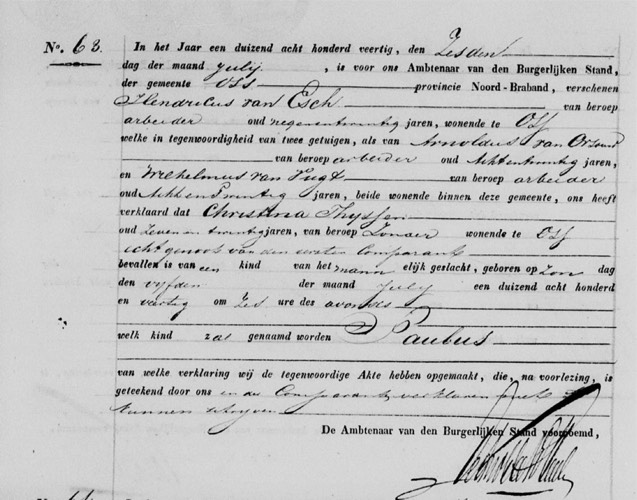 No. 63.
In het Jaar een duizend acht honderd veertig, den Zesden
dag der maand July, is voor ons Ambtenaar van den Burgerlijken Stand,
der gemeente Oss provincie Noord-Braband, verschenen
Hendricus van Esch van beroep
arbeider oud negenentwintig jaren, wonende te Oss
welke in tegenwoordigheid van twee getuigen, als van Arnoldus van
van beroep arbeider oud Achtentwintig jaren,
en Wilhelmus van Vugt van beroep arbeider
oud jaren, beide wonende binnen deze gemeente, ons heeft
verklaard dat Christina Thyssen
oud Zevenentwintig jaren, van beroep Zonder wonende te Oss
echtgenoot van den eersten Comparant
bevallen is van een kind van het mann elijk geslacht, geboren op Zon dag
den vyfden der maand July een duizend acht honderd
en veertig om Zes ure des avonds
welk kind zal genaamd worden Paulus
van welke verklaring wij de tegenwoordige Akte hebben opgemaakt, die, na voorlezing, is
geteekend door ons en de Comparanten verklaren niet te
kunnen schryven
De Ambtenaar van den Burgerlijken Stand voornoemd,